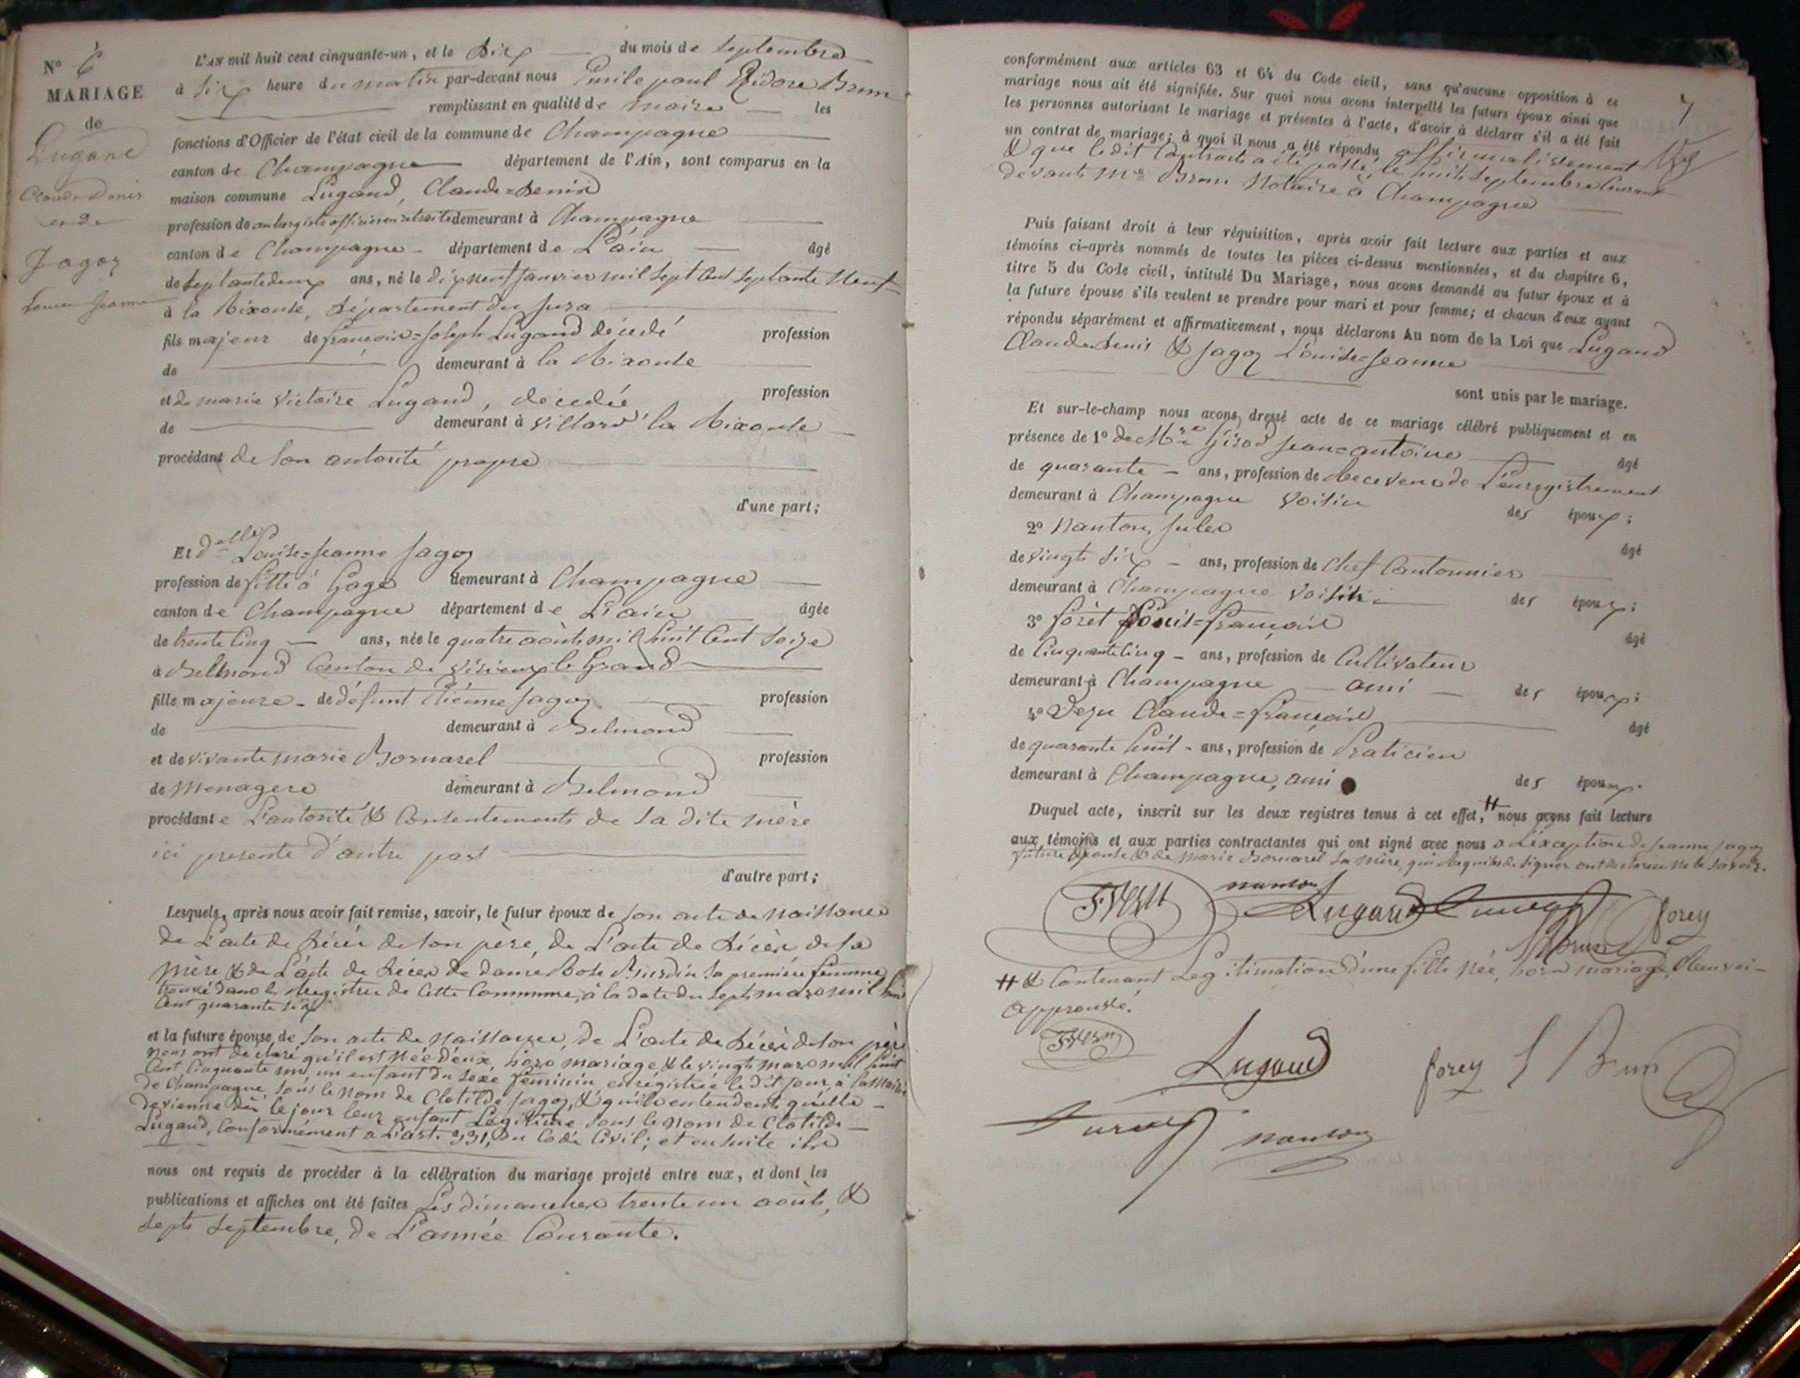 N° 6
MARIAGE
de
Lugand
Claude Denis
et de
Jagoz
Louise Jeanne
L'AN mil huit cent cinquante-un, et le Dix du mois de Septembre
à Six heure du matin par-devant nous Emile paul Brun
remplissant en qualité de maire les
fonctions d'Officier de l'état civil de la commune de Champagne
canton de Champagne département de l'Ain, sont comparus en la
maison commune Lugand, Claude=Denis
profession de aubergiste officier en retraite demeurant à Champagne
canton de Champagne département de L'ain âgé
de Septante deux ans, né le dix neuf Janvier mil sept Cent septante Neuf
à la Rixouse, Département du Jura
fils majeur de françois=Joseph Lugand décédé profession
de demeurant à la Rixouse
et de marie victoire Lugand, décédée profession
de demeurant à villard la Rixouse
procédant de son autorité propre
d'une part;
Et dlle Louise=Jeanne Jagoz
profession de fille à Gage demeurant à Champagne
canton de Champagne département de L'ain âgée
de trente Cinq ans, née le quatre août mil huit Cent Seize
à Belmond Canton de virieux le Grand
fille majeure de défunt Etienne Jagoz profession
de demeurant à Belmond
et de vivante marie Bornarel profession
de menagere demeurant à Belmond
procédant e L'autorité & Consentement de sa dite mère
ici presente d'autre part
d'autre part;
Lesquels, après nous avoir fait remise, savoir, le futur époux de son acte de Naissance
de L'acte de Décès de son père, de L'acte de Décès de sa
mère & de L'acte de Décès de dame Rose sa première femme
trouvé dans les Registres de Cette Commune, à la date du sept mars mil huit
Cent quarante six
et la future épouse de son acte de Naissance, de L'acte de Décès de son père
nous ont déclaré qu'il est née d'eux, hors mariage & le vingt mars mil huit
Cent Cinquante un, un enfant du Sexe féminin, enregistrée le dit jour, à la Mairie
de Champagne, sous le nom de Clotilde Jagoz, & qu'ils entendent qu'elle
devienne dès le jour leur enfant Légitime sous le nom de Clotilde
Lugand, Conformément à L'art. 331, du Code Civil; et ensuite ils
nous ont requis de procéder à la célébration du mariage projeté entre eux, et dont les
publications et affiches ont été faites Les dimanches trente un août, &
sept Septembre, de L'année Courante.
7
conformément aux articles 63 et 64 du Code civil, sans qu'aucune opposition à ce
mariage nous ait été signifiée. Sur quoi nous avons interpellé les futurs époux ainsi que
les personnes autorisant le mariage et présentes à l'acte, d'avoir à déclarer s'il a été fait
un contrat de mariage; à quoi il nous a été répondu affirmativement
& que le dit Contrat a été passé, le huit Septembre Courant
devant Me Brun Notaire à Champagne
Puis faisant droit à leur réquisition, après avoir fait lecture aux parties et aux
témoins ci-après nommés de toutes les pièces ci-dessus mentionnées, et du chapitre 6,
titre 5 du Code civil, intitulé Du Mariage, nous avons demandé au futur époux et à
la future épouse s'ils veulent se prendre pour mari et pour femme; et chacun d'eux ayant
répondu séparément et affirmativement, nous déclarons Au nom de la Loi que Lugand
Claude Denis & Jagoz Louise=Jeanne
sont unis par le mariage.
Et sur-le-champ nous avons dressé acte de ce mariage célébré publiquement et en
présence de 1° de Mre Jean=antoine âgé
de quarante ans, profession de Receveur de L'enregistrement
demeurant à Champagne voisin des époux;
2° Nanton, Jules âgé
de vingt six ans, profession de Chef Cantonnier
demeurant à Champagne voisin des époux;
3° forêt Louis=françois âgé
de Cinquante Cinq ans, profession de Cultivateur
demeurant à Champagne ami des époux;
4° Claude=françois âgé
de quarante huit ans, profession de Praticien
demeurant à Champagne, ami des époux.
Duquel acte, inscrit sur les deux registres tenus à cet effet, # nous avons fait lecture
aux témoins et aux parties contractantes qui ont signé avec nous à L'exception de Jeanne Jagoz
future Epouse & de marie Bornarel sa mère, qui Requises de signer ont déclaré ne le savoir.
nanton
Lugand
forey
# & Contenant Legitimation d'une fille née, hors mariage, Renvoi
approuvé.
Lugand
forey
Brun
nanton